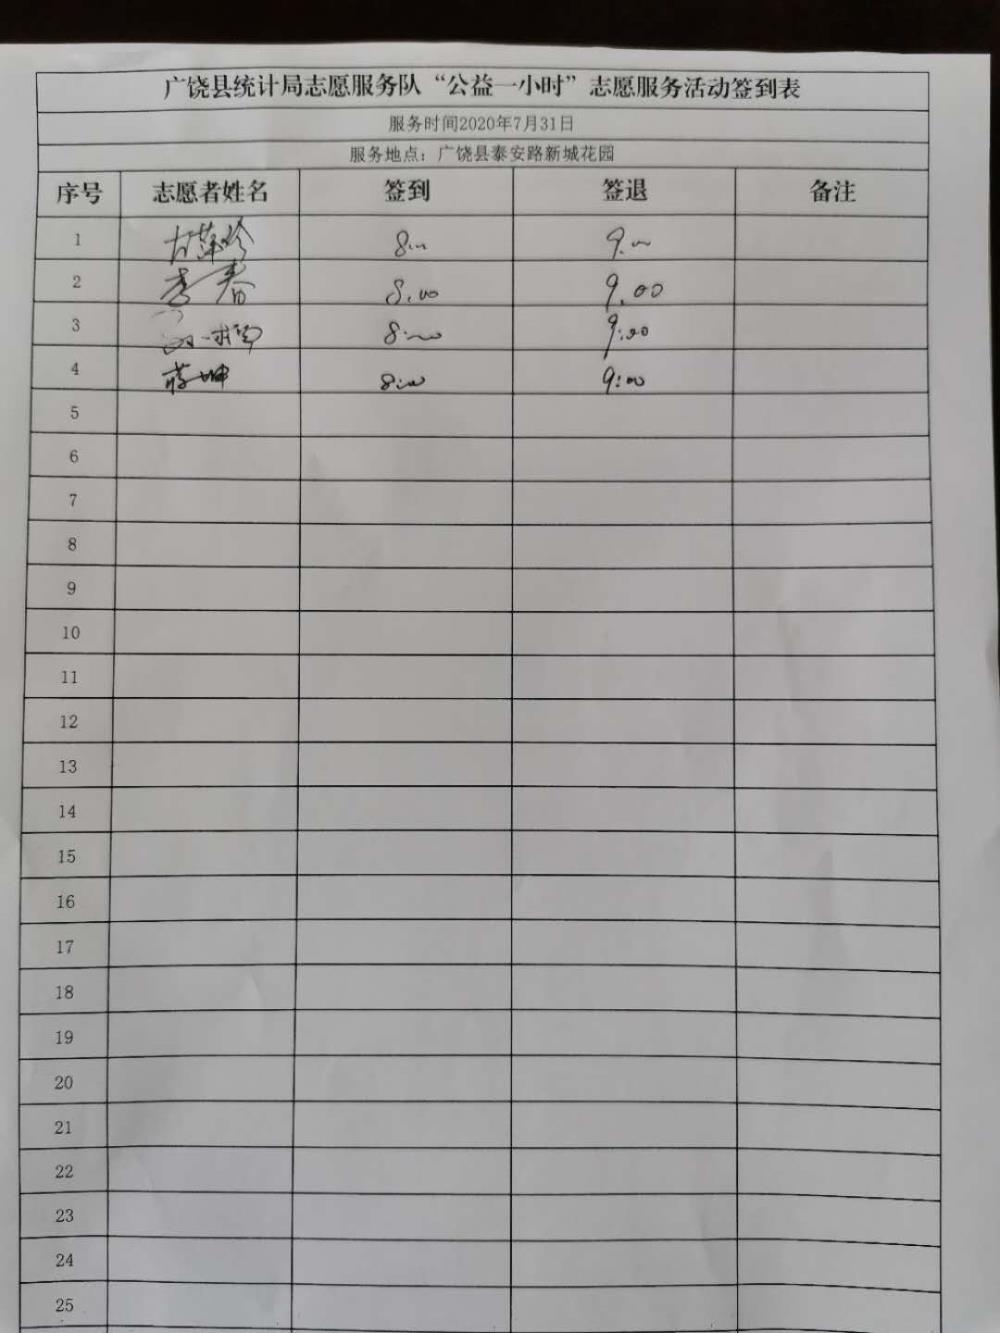 广饶县统计局志愿服务队“公益一小时”志愿服务活动签到表
服务时间2020年7月31日
服务地点：广饶县泰安路新城花园
序号 志愿者姓名 签到 签退 备注
1 8:00 9:00
2 李春 8:00 9:00
3 8:00 9:00
4 蒋坤 8:00 9:00
5
6
7
8
9
10
11
12
13
14
15
16
17
18
19
20
21
22
23
24
25